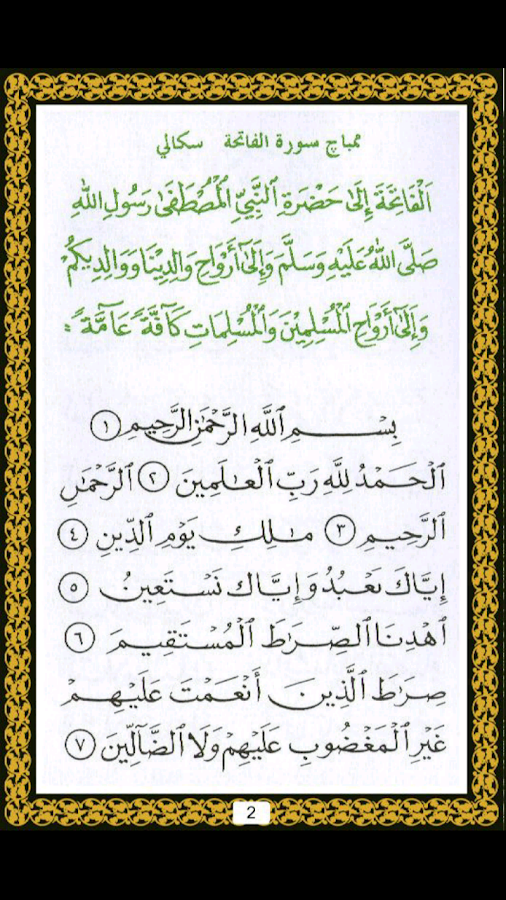 ممباچ سورة الفاتحة سكالي
اَلْفَاتِحَةَ إِلَىٰ حَضْرَةِ ٱلنَّبِيِّ ٱلْمُصْطَفَىٰ رَسُولِ اللهِ
صَلَّى اللهُ عَلَيْهِ وَسَلَّمَ وَإِلَىٰٓ أَرْوَاحِ وَالِدِيْنَا وَوَالِدِيكُمْ
وَإِلَىٰٓ أَرْوَاحِ ٱلْمُسْلِمِيْنَ وَٱلْمُسْلِمَاتِ كَآفَّةً عَآمَّةً :
بِسْمِ ٱللَّهِ ٱلرَّحْمَٰنِ ٱلرَّحِيمِ ١
ٱلْحَمْدُ لِلَّهِ رَبِّ ٱلْعَٰلَمِينَ ٢ ٱلرَّحْمَٰنِ
ٱلرَّحِيمِ ٣ مَٰلِكِ يَوْمِ ٱلدِّينِ ٤
إِيَّاكَ نَعْبُدُ وَإِيَّاكَ نَسْتَعِينُ ٥
ٱهْدِنَا ٱلصِّرَٰطَ ٱلْمُسْتَقِيمَ ٦
صِرَٰطَ ٱلَّذِينَ أَنْعَمْتَ عَلَيْهِمْ
غَيْرِ ٱلْمَغْضُوبِ عَلَيْهِمْ وَلَا ٱلضَّآلِّينَ ٧
2